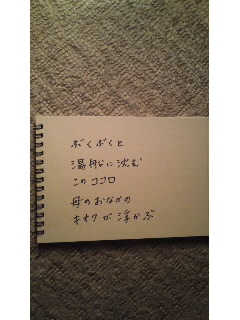 ぶくぶくと
湯船に沈む
このココロ
母のおなかの
キオクが浮かぶ